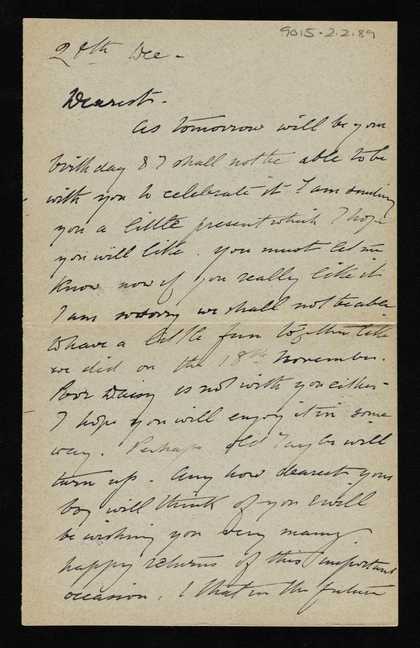 9015-2-2-89
28th Dec -
Dearest -
As tomorrow will be your
birthday & I shall not be able to be
with you to celebrate it I am sending
you a little present which I hope
you will like. You must let me
know now if you really like it
I am so sorry we shall not be able
to have a little fun together like
we did on the 18th November.
Poor Daisy is not with you either -
I hope you will enjoy it in some
way. Perhaps old Taylor will
turn up. Any how dearest your
boy will think of you & will
be wishing you very many
happy returns of this important
occasion. & that in the future